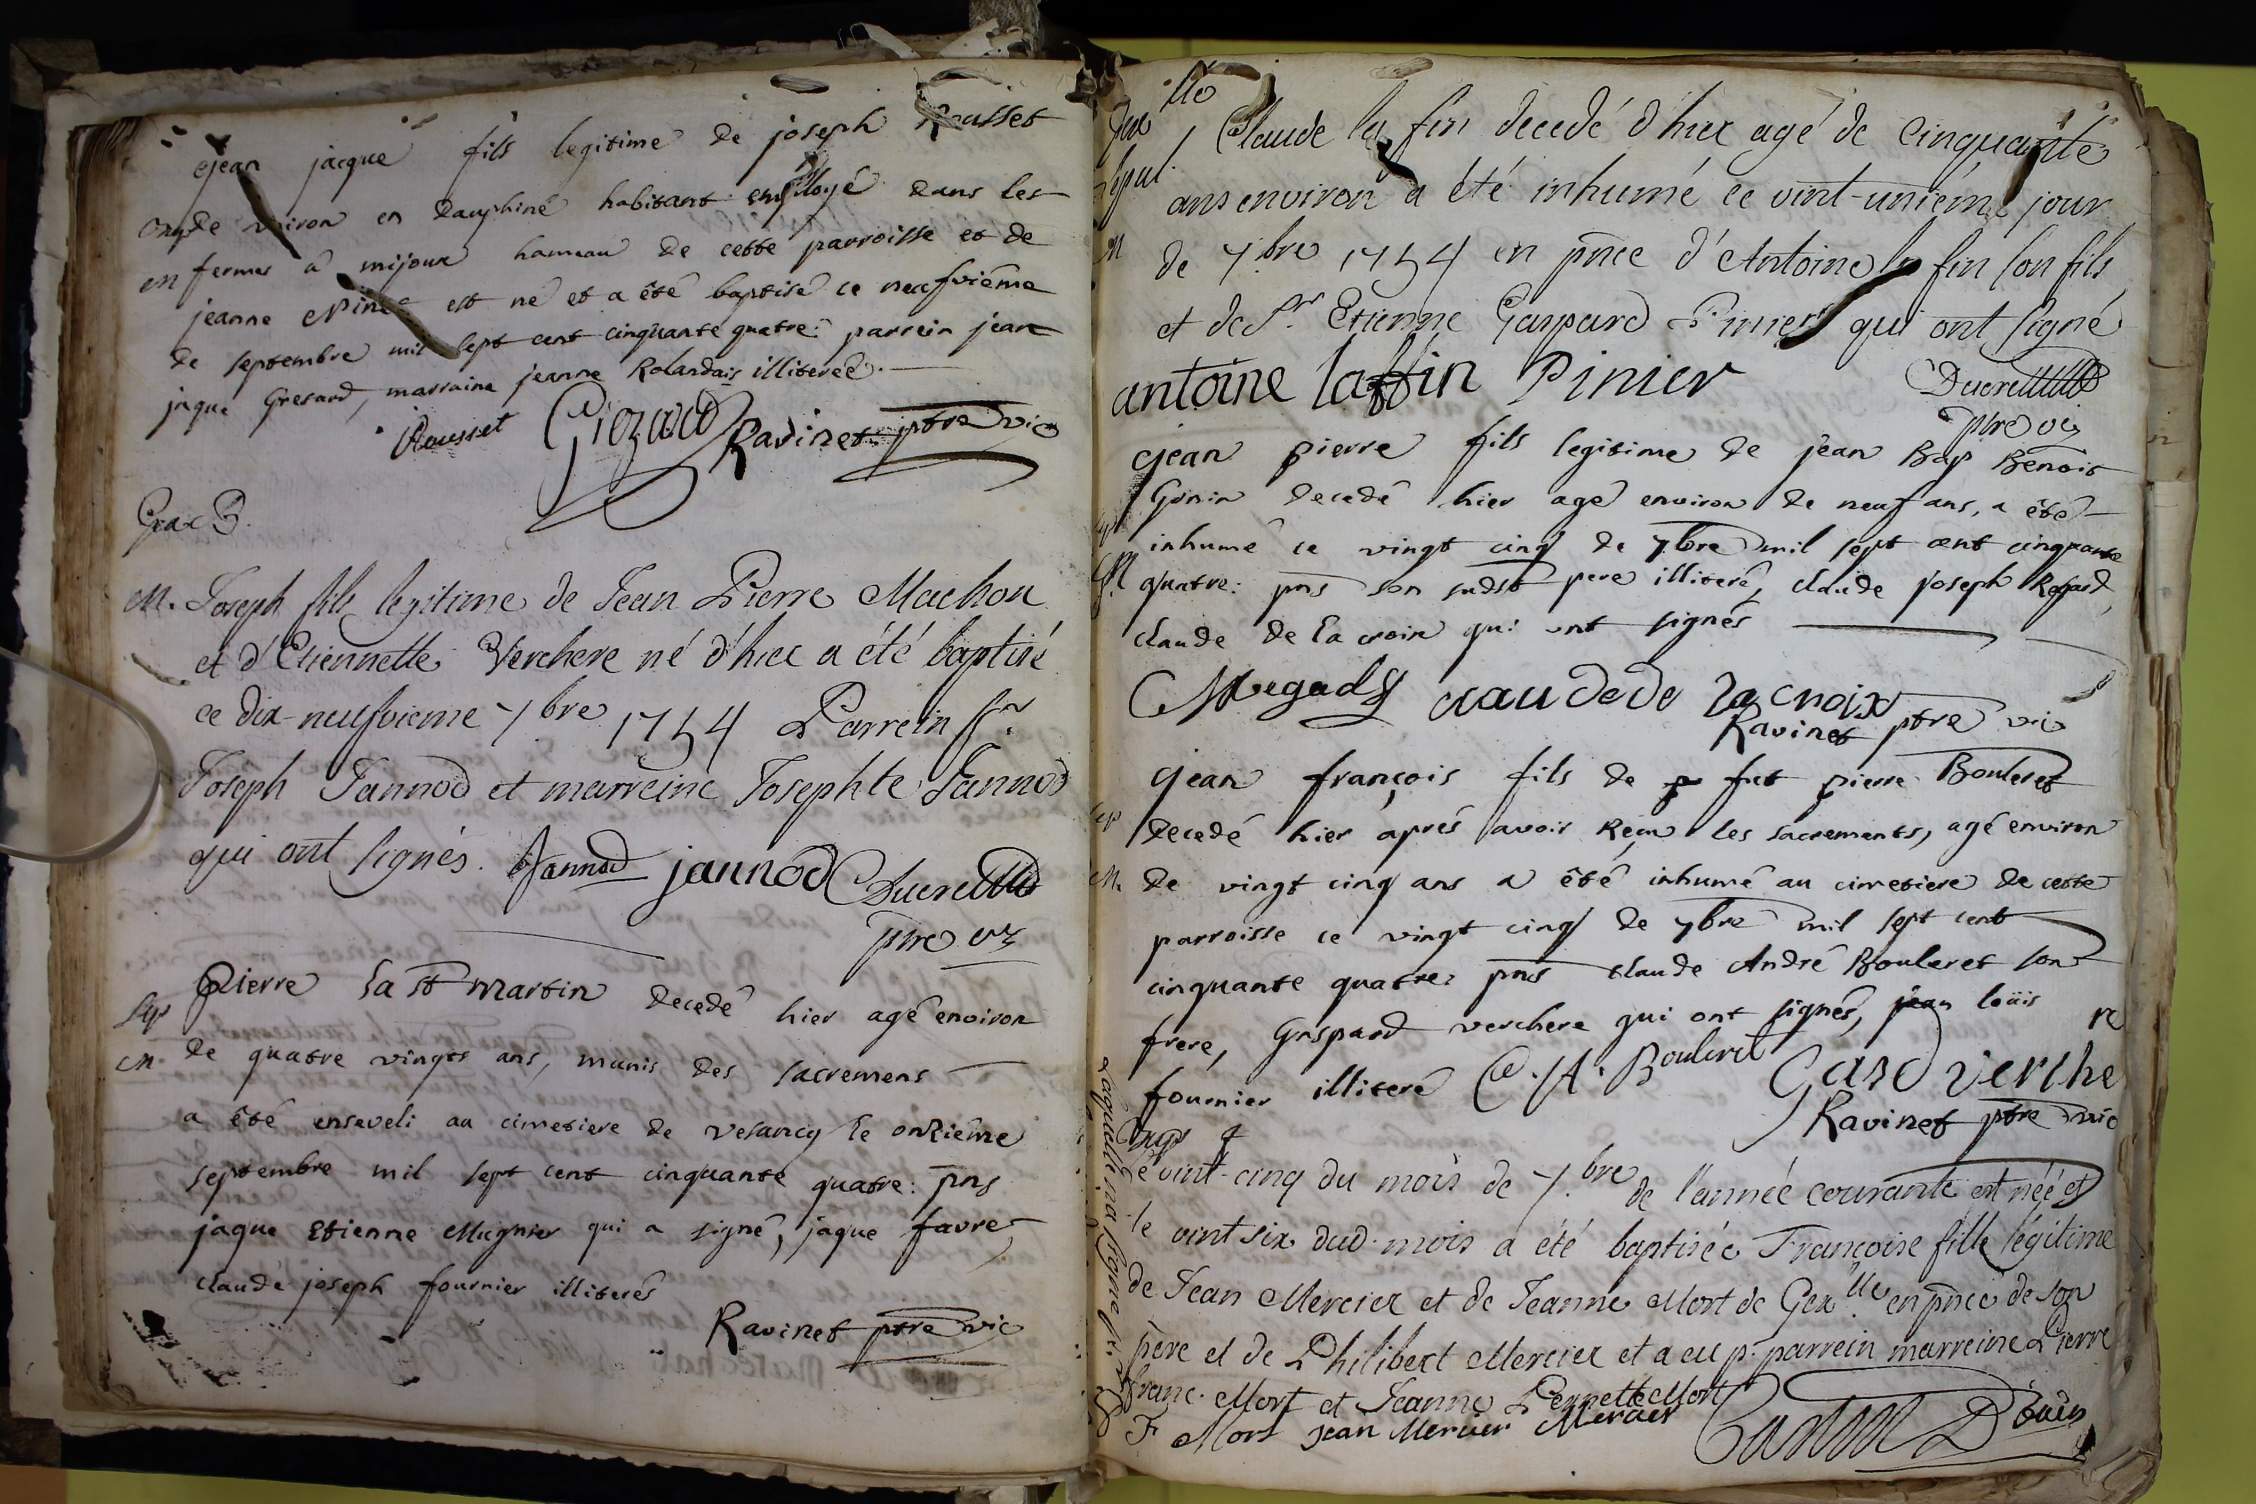 jean jacque fils legitime de joseph Rousset
de voiron en dauphiné habitant employé dans les
fermes a mijoux hameau de cette parroisse et de
jeanne est né et a été baptisé ce neufvième
de septembre mil sept cent cinquante quatre: parrein jean
jaque Gresard, marraine jeanne Rolandais illiterée.
Rousset Grezard Ravinet ptre vic
Gex B.
M. Joseph fils legitime de Jean Pierre Machon
et d'Etiennette Verchere né d'hier a été baptisé
ce dix-neufvieme 7bre 1754 Parrein Sr.
Joseph Jannod et marreine Josephte Jannod
qui ont signés. Jannod jannod Ducret
ptre vic
Pierre la st martin decedé hier agé environ
Sep
M. de quatre vingts ans, munis des sacremens
a été enseveli au cimetiere de vesancy le onziême
septembre mil sept cent cinquante quatre: pns
jaque Etienne Mugnier qui a signé, jaque favre,
claude joseph fournier illiterés
Ravinet ptre vic
Gex lle
Sepul. Claude la fin decedé d'hier agé de cinquante
ans environ a été inhumé ce vint-uniéme jour
M
de 7bre 1754 en pnce d'Antoine la fin son fils
et de Sr. Etienne Gaspard Pinier qui ont signé
antoine laffin Pinier Ducret
ptre vic
jean pierre fils legitime de jean Bap Benoit
Gonin decedé hier agé environ de neuf ans, a été
inhumé ce vingt cinq de 7bre mil sept cent cinquante
quatre: pns son sudst pere illiteré, claude joseph Regard,
claude de la croix qui ont signés
Regard claude de la croix
Ravinet ptre vic
jean françois fils de fut pierre Bouleret
Sep
decedé hier aprés avoir reçu les sacrements, agé environ
M. de vingt cinq ans a été inhumé au cimetiere de cette
parroisse ce vingt cinq de 7bre mil sept cent
cinquante quatre: pns claude André Bouleret son
frere, Gaspard verchere qui ont signés, jean loüis
fournier illiteré C. A. Bouleret Gasd verchere
Ravinet ptre vic
Le vint-cinq du mois de 7.bre de l'année courante est néé et
le vint six dud. mois a été baptisée Françoise fille légitime
de Jean Mercier et de Jeanne Mort de Gex lle en pnce de son
père et de Philibert Mercier et a eu p. parrein marreine Pierre
franc. Mort et Jeanne Pernette Mort
P F Mort jean Mercier Mercier